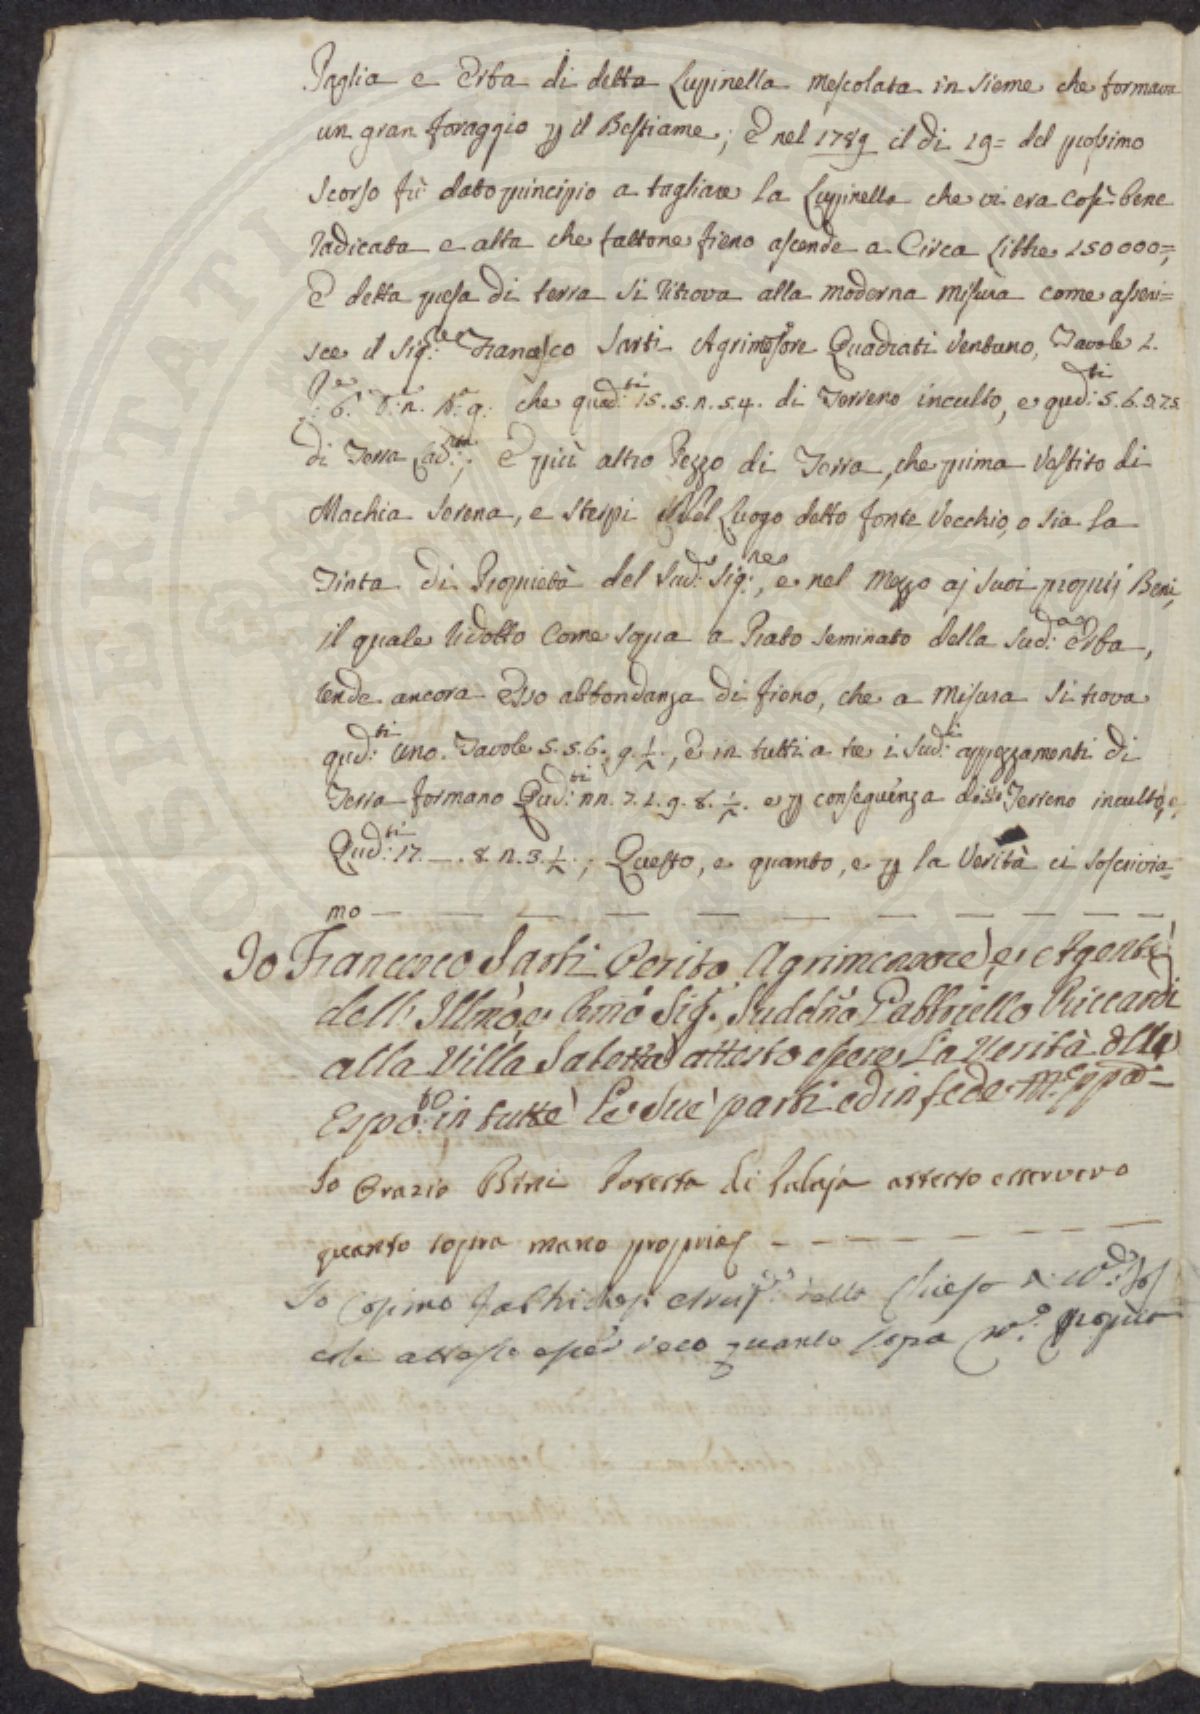 Paglia e Erba di detta Lupinella mescolata in sieme che formava
un gran foraggio p il Bestiame; E nel 1789 il di 19= del prossimo
scorso fù dato principio a tagliare la Lupinella che vi era così bene
radicata e alta che fattone fieno ascende a Circa libbre 150000=,
E detta presa di terra si ritrova alla moderna misura come asseri=
sce il Sig:re Francesco Sarti Agrimesore Quadrati Ventuno, Tavole 1.
che quad:ti 15. 5. n. 54. di Terreno inculto, e qud:ti 5. 6. 3. 7.5
di Terra E più altro Pezzo di Terra, che prima vestito di
Machia serena, e sterpi Nel Luogo detto fonte Vecchio, o sia la
Tinta di Proprietà del Sud: Sig:re, e nel mezzo aj suoi proprij Beni,
il quale ridotto Come sopra a Prato seminato della Sud:a Erba,
rende ancora Esso abbondanza di fieno, che a misura si trova
qud:ti Uno. Tavole 5. 5. 6. 9. ½., E in tutti a tre i Sud:ti appezzamenti di
Terra formano Qud:ti nn. 7. 1. 9. 8. ½. e p conseguenza Terreno inculto,
Qud:ti 17. —. 8. n. 3. ½.; Questo, e quanto, e p la Verità ci soscrivia=
mo — — — — — — — — —
Io Francesco Sarti Perito Agrimensore, e Agente
dell Illmo, e Sig.r Sudd:o Gabbriello Riccardi
alla Villa Saletta attesto essere La Verità
Espo:to in tutte Le Sue parti ed in fede M:o pp:a=
Io Orazio Bini Potestà di Palaja attesto esser vero
quanto sopra mano propria — — — — —
Io Cosimo della Chiesa
attesto esser vero quanto sopra m:o propria